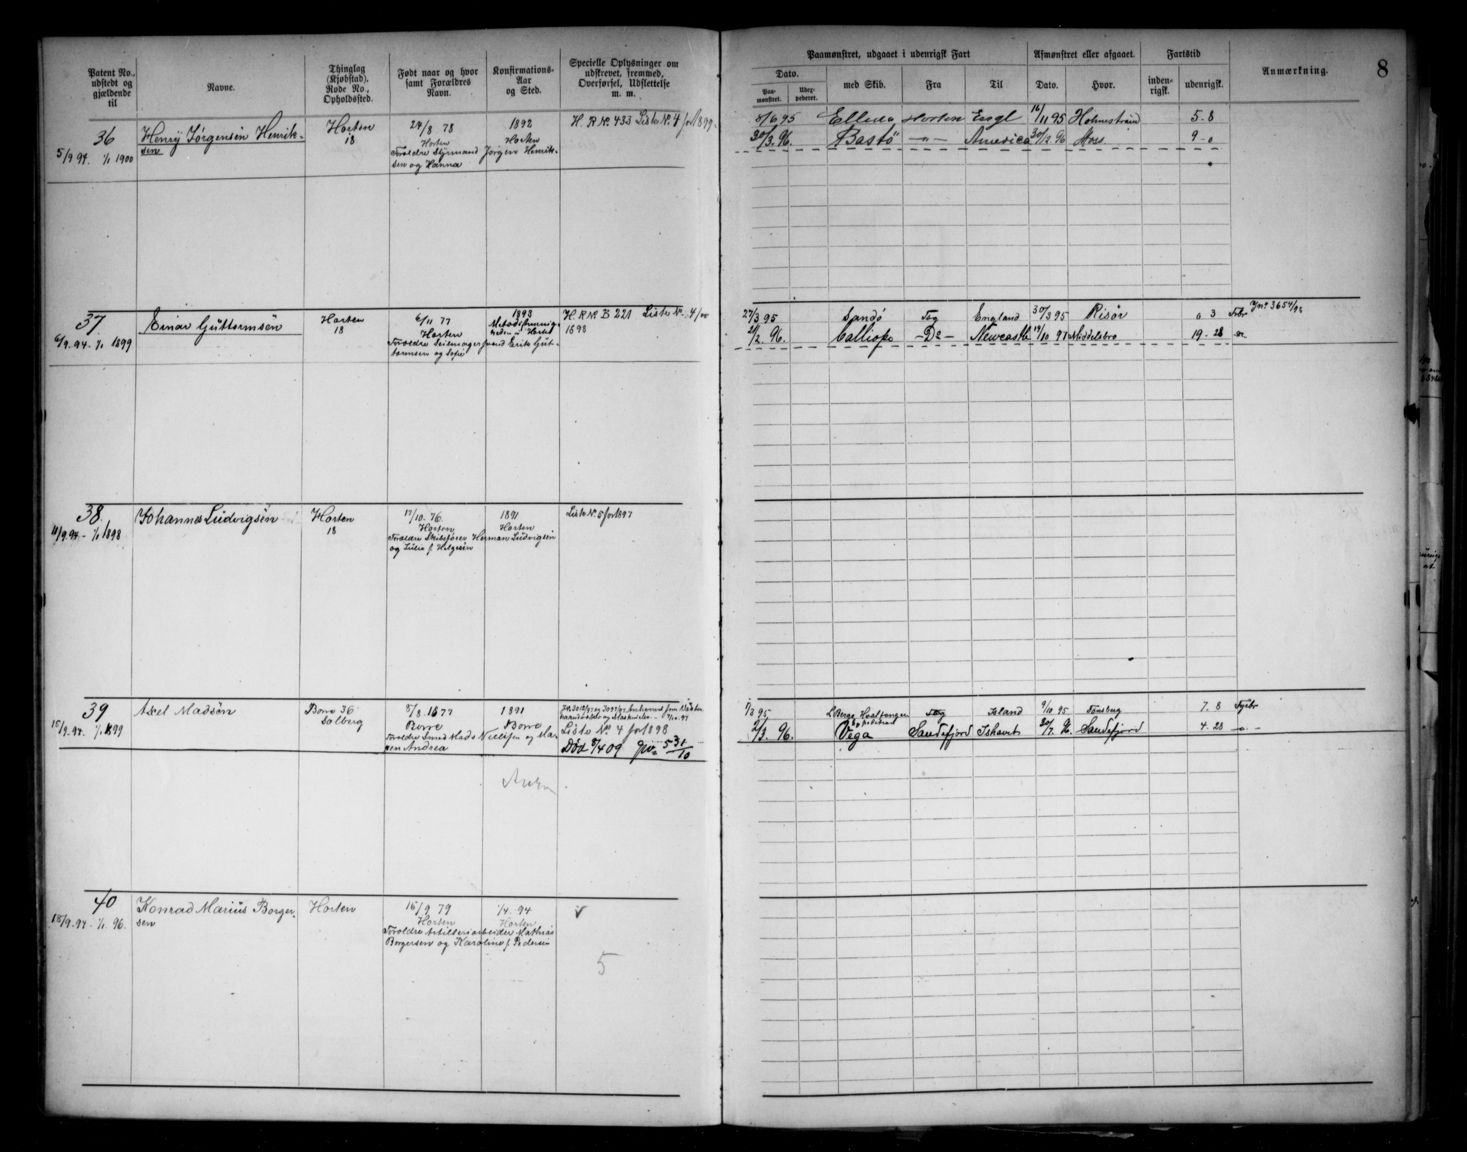 Patent No., udstedt og gjældende til
Navne.
Thinglag (Kjøbstad). Rode No., Opholdssted.
Født naar og hvor samt Forældres Navn.
Konfirmations-Aar og Sted.
Specielle Oplysninger om udskrevet, fremmed, Overførsel, Udslettelse m. m.
Paamønstret, udgaaet i udenrigsk Fart
Afmønstret eller afgaaet.
Fartstid
Dato.
Paa-mønstret.
med Skib.
Fra
Til
Dato.
Hvor.
inden-rigsk.
udenrigsk.
Anmærkning.
8
36
5/9 94. 1/1 1900
Henry Jørgensen Henrik-
sen
Horten
18
24/8 78
Horten
Forældre Styrmand Jørgen Henrik-
sen og Hanna
1892
Horten
H. R. Nº. 433 Liste Nº. 4 for 1899.
5/6 95 Ellida Horten Engl 16/11 95 Holmestrand 5 - 8
30/3 96. Bastø -"- America 30/12 96 Moss 9 - 0
37
6/9. 94. - 1/1 1899
Einar Guttormsen
Horten
18
6/11 77
Horten
Forældre Seilmagersvend Erik Gut-
tormsen og Sofie
1893
H R Nº B 221 Liste Nº. 4/00
1898
27/3 95 Sandø Tbg England 30/3 95 Risør 0 3
21/2. 96. Calliope - Do - Newcastle 19/10 97 Middelsbro 19 - 28
38
11/9. 94. - 1/1 1898
Johannes Ludvigsen
Horten
18
17/10. 76.
Horten
Forældre Skibsfører Herman Ludvigsen
og Lulio f. Helgesen
1891
Horten
Liste Nº 5 for 1897
39
15/9. 94. - 1/1 1899
Axel Madsen
Borre 36
Solberg
5/8 1877
Borre
Forældre Smed Mads Nielsen og Ma-
ren Andrea
1891
Borre
Liste Nº 4 for 1898
Død 9/4 09
1/3 95 Tbg Island 9/10 95 Tønsberg 7. 8
2/3. 96. Vega Sandefjord Ishavet 30/7. 96. Sandefjord 4. 28 -"-
40
15/9. 94. - 1/1. 96.
Konrad Marius Borger-
sen
Horten
15/9 79
Horten
Forældre Artilleriarbeider Mathias
Borgersen og Karoline f. Pedersen
1/4. 94
Horten
5